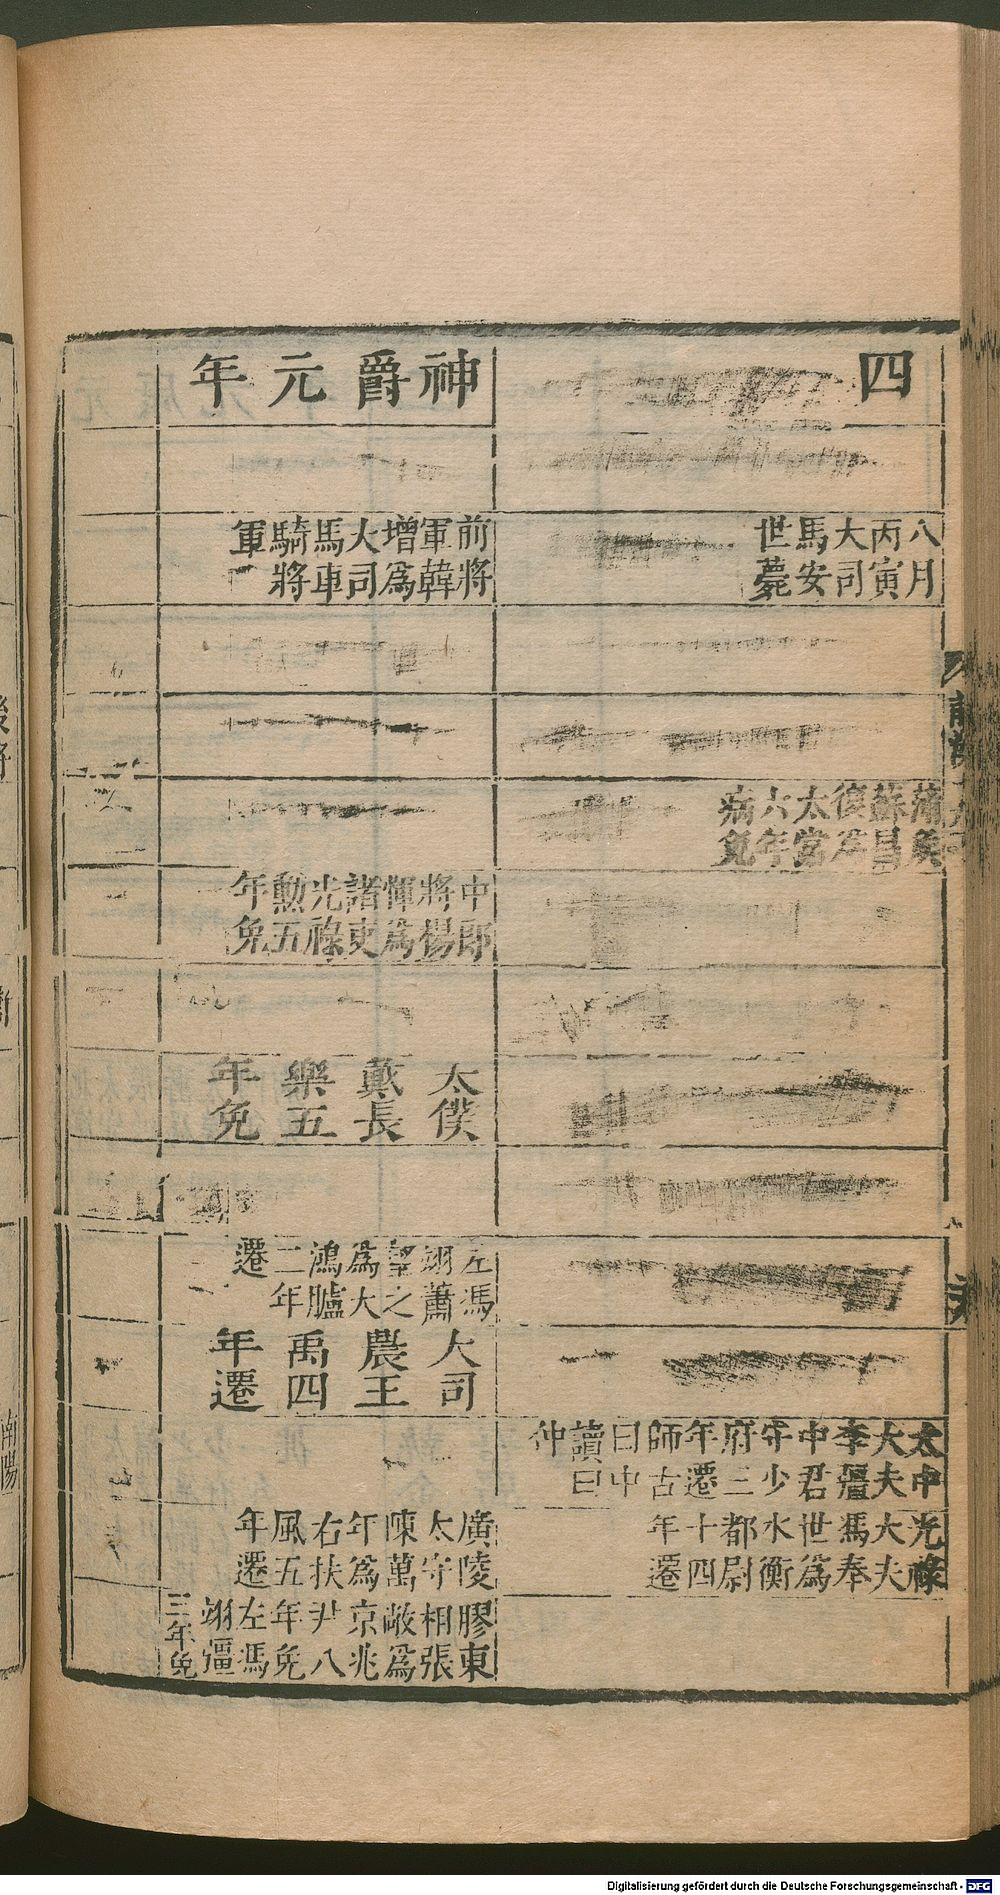 四
八月
丙寅
大司
馬安
世薨
蒲侯
蘇昌
復爲
太常
六年
病免
太中
大夫
李彊
中君
守少
府三
年遷
師古
曰中
讀曰
仲
光祿
大夫
馮奉
世爲
水衡
都尉
十四
年遷
神爵元年
前將
軍韓
增爲
大司
馬車
騎將
軍
中郎
將楊
惲爲
諸吏
光祿
勲五
年免
太僕
戴長
樂五
年免
左馮
翊蕭
望之
爲大
鴻臚
二年
遷
大司
農王
禹四
年遷
廣陵
太守
陳萬
年爲
右扶
風五
年遷
膠東
相張
敞爲
京兆
尹八
年免
左馮
翊彊
三年免
後將
南陽
Digitalisierung gefördert durch die Deutsche Forschungsgemeinschaft - DFG